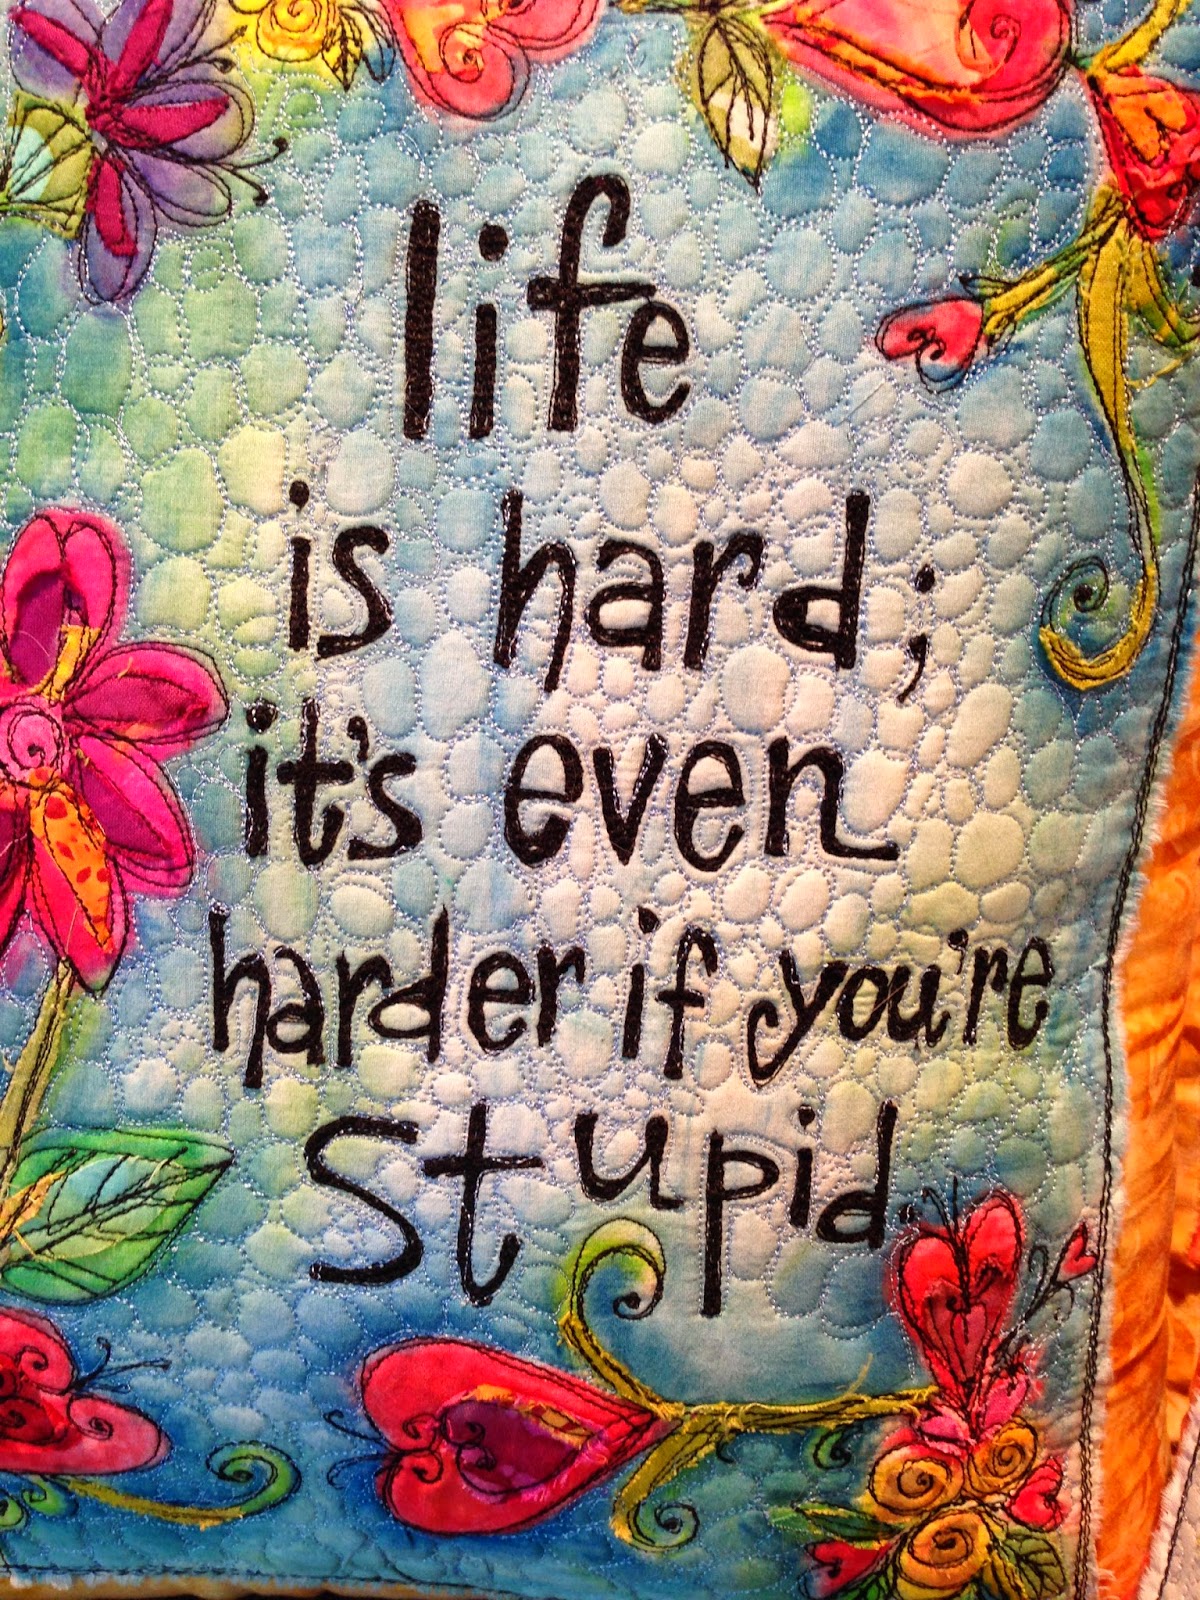 life
is hard;
it's even
harder if you're
stupid.